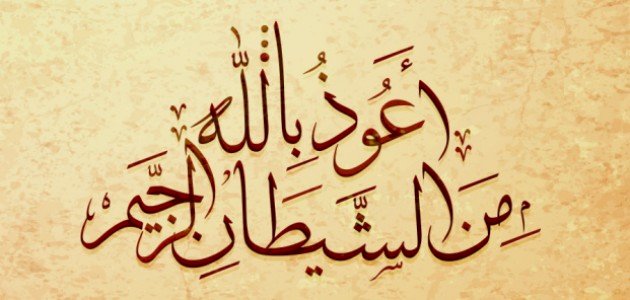 أَعُوذُ بِاللَّهِ
مِنَ الشَّيطَانِ الرَّجِيمِ